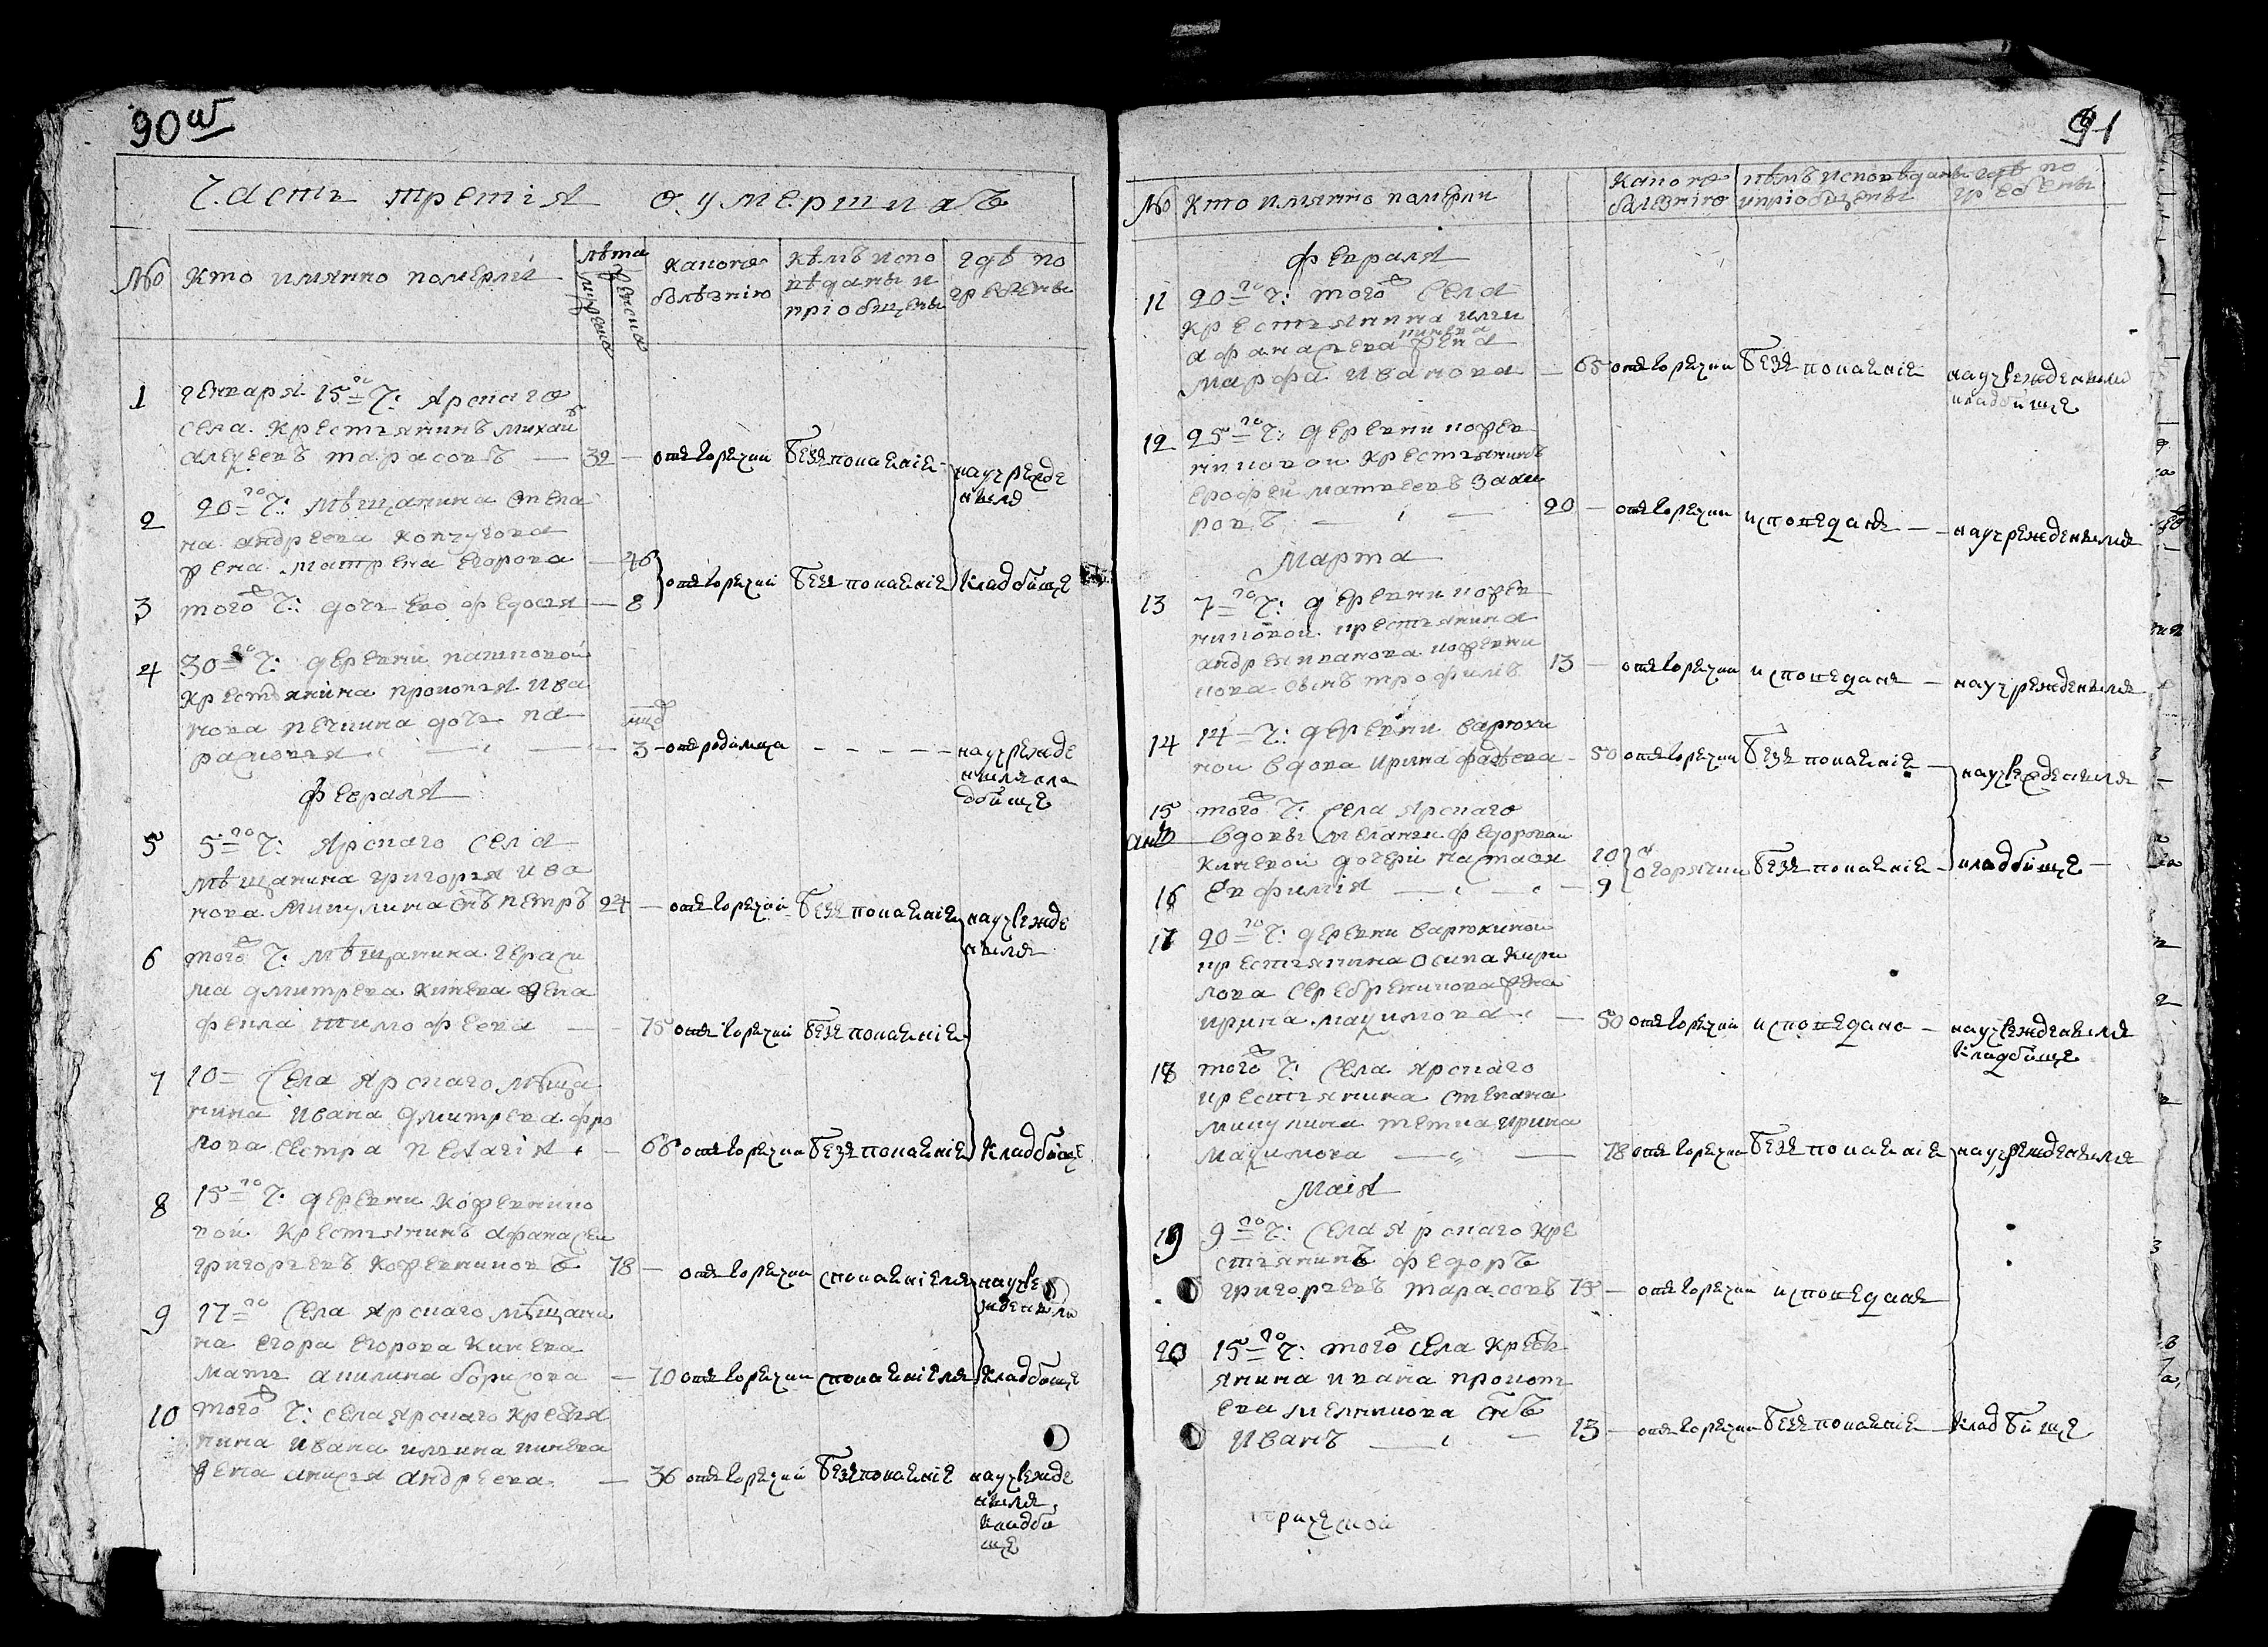 90 об
Часть третія о умершихъ
№
Кто имянно померли
лѣта
мужеска
женска
какою
болѣзнію
кѣмъ испо
вѣданы и
пріобщены
гдѣ по
гребены
1
генваря 15го ч: Ярскаго
села крестьянинъ михаи
алеѯеевъ тарасовъ — 32 — отъ горячки безъ покаянія
на учрежде
нномъ
2
20го ч: мѣщанина степа
на андреева
жена матрена егорова — 46
отъ горячки безъ покаянія кладбище
3
того ж ч: дочь ево федосья — 8
4
30го ч: деревни пашковой
крестьянина прокопья ива
нова печкина дочь па
расковья — 3 — отъ родимца — — — — на учрежде
нномъ кла
дбище
февраля
5
5го ч: Ярскаго села
мѣщанина григорья ива
нова микулина снъ петръ 24 — отъ горячки безъ покаянія на учрежде
нномъ
6
того ж ч: мѣщанина гераси
ма дмитрева кинева жена
фекла тимофеева — 75 отъ горячки безъ покаянія
7
10 села Ярскаго мѣща
нина ивана дмитрева фро
лова сестра пелагія — 66 отъ горячки безъ покаянія кладбище
8
15го ч: деревни кожевнико
вой крестьянинъ афанасеи
григорьевъ кожевниковъ 78 — отъ горячки с покаяніемъ на учре
жденномъ
9
17го села Ярскаго мѣщани
на егора егорова кинева
мать акилина борисова — 70 отъ горячки с покаяніемъ кладбище
10
того ж ч: села Ярскаго крестья
нина ивана ильина кинева
жена анисья андреева — 36 отъ горячки безъ покаянія на учрежде
нномъ
кладби
ще
91
№
Кто имянно померли
какою
болезнію
кѣмъ исповѣданы
и пріобщены
гдѣ по
гребены
февраля
11
20го ч: того ж села
крестьянина ильи
кинева
афанасьева жена
марфа иванова — 65 отъ горячки безъ покаянія на учрежденномъ
кладбище
12
25го ч: деревни кожев
никовои крестьянинъ
ерофеи матвеевъ
ровъ — 20 — отъ горячки исповеданъ — на учрежденномъ
Марта
13
7го ч: деревни кожев
никовои крестьянина
андрея иванова кожевни
кова сынъ трофимъ 13 — отъ горячки исповеданъ — на учрежденномъ
14
14 ч: деревни варюхи
нои вдова ирина фадеева — 50 отъ горячки безъ покаянія — на учрежденномъ
15
того ж ч: села Ярскаго
вдовы меланьи федоровои
киневои дочери настасья 10
горячки безъ покаянія — кладбище —
16
Евфимія — 9
17
20го ч: деревни варюхинои
крестьянина осипа кири
лова серебреникова жена
ирина маѯимова — 50 отъ горячки исповедана — на учрежденномъ
кладбище
18
того ж ч: села Ярскаго
крестьянина степана
микулина тетка ирина
маѯимова — 78 отъ горячки безъ покаянія на учрежденномъ
Маія
19
9го ч: села Ярскаго кре
стьянинъ федоръ
григорьевъ тарасовъ 75 — отъ горячки исповеданъ
20
15го ч: того ж села кресть
янина ивана прокопь
ева мельникова снъ
иванъ — 13 — отъ горячки безъ покаянія — кладбище